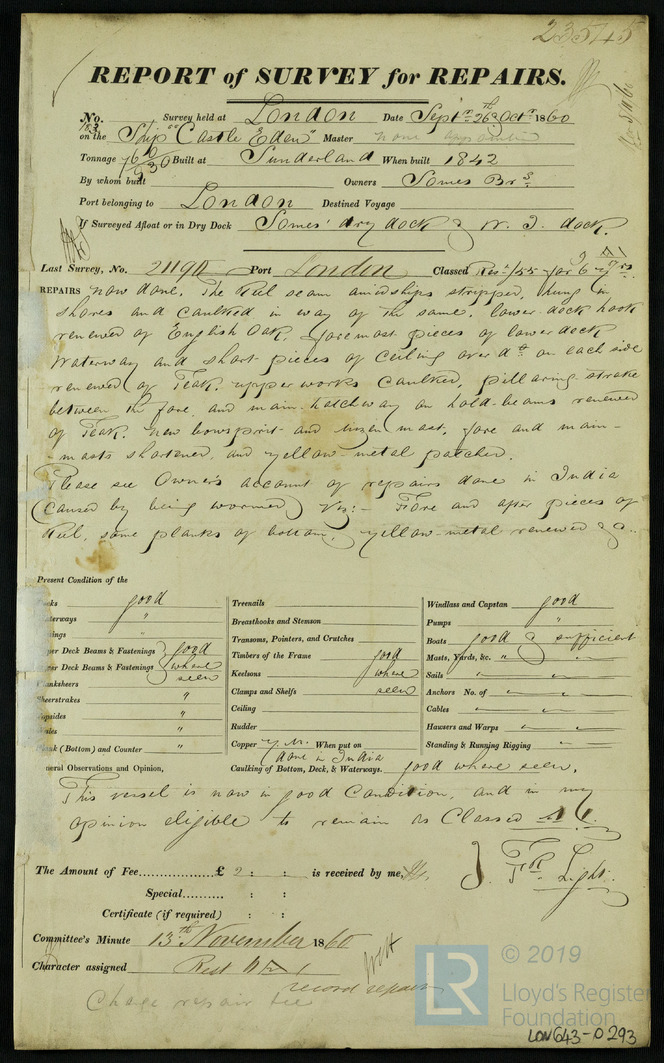 23545
REPORT of SURVEY for REPAIRS.
No. Survey held at London Date Septr 26th & Octr 1860
on the Ship "Castle Eden" Master none appointed
Tonnage 930 Built at Sunderland When built 1842
By whom built Owners Somes Brs
Port belonging to London Destined Voyage
If Surveyed Afloat or in Dry Dock Somes' dry dock & W. I. dock.
Last Survey, No. 21190 Port London Classed Resd /55 for 6 yrs.
REPAIRS now done. The Keel seam amidships stripped, hung in
shores and caulked in way of the same. lower deck hook
renewed of English Oak, foremost pieces of lower deck
Waterway and short pieces of Ceiling over do on each side
renewed of Teak. upper works caulked, pillaring strake
between the fore and main hatchway on hold-beams renewed
of Teak. new bowsprit and mizen mast, fore and main-
-masts shortened, and yellow metal patched.
Please see Owner's account of repairs done in India
(caused by being wormed) Viz:- Fore and after pieces of
Keel, some planks of bottom, yellow-metal renewed &c.
Present Condition of the
good
Treenails
Windlass and Capstan good
"
Breasthooks and Stemson
Pumps "
"
Transoms, Pointers, and Crutches
Boats good & sufficient
Deck Beams & Fastenings good
Timbers of the Frame good
Masts, Yards, &c. " "
Deck Beams & Fastenings where seen
Keelsons where
Sails " "
"
Clamps and Shelfs seen
Anchors No. of " "
"
Ceiling
Cables " "
"
Rudder
Hawsers and Warps " "
(Bottom) and Counter "
Copper y.M. When put on done in India
Standing & Running Rigging "
General Observations and Opinion,
Caulking of Bottom, Deck, & Waterways. good where seen.
This vessel is now in good Condition, and in my
opinion eligible to remain as Classed A 6.
The Amount of Fee £ 2 : : is received by me,
J. Fk. Light.
Special : :
Certificate (if required) : :
Committee's Minute 13th November 1860
Character assigned Rest A 1
record repairs
Charge repair fee
LR
© 2019
Lloyd's Register
Foundation
LON643-0293